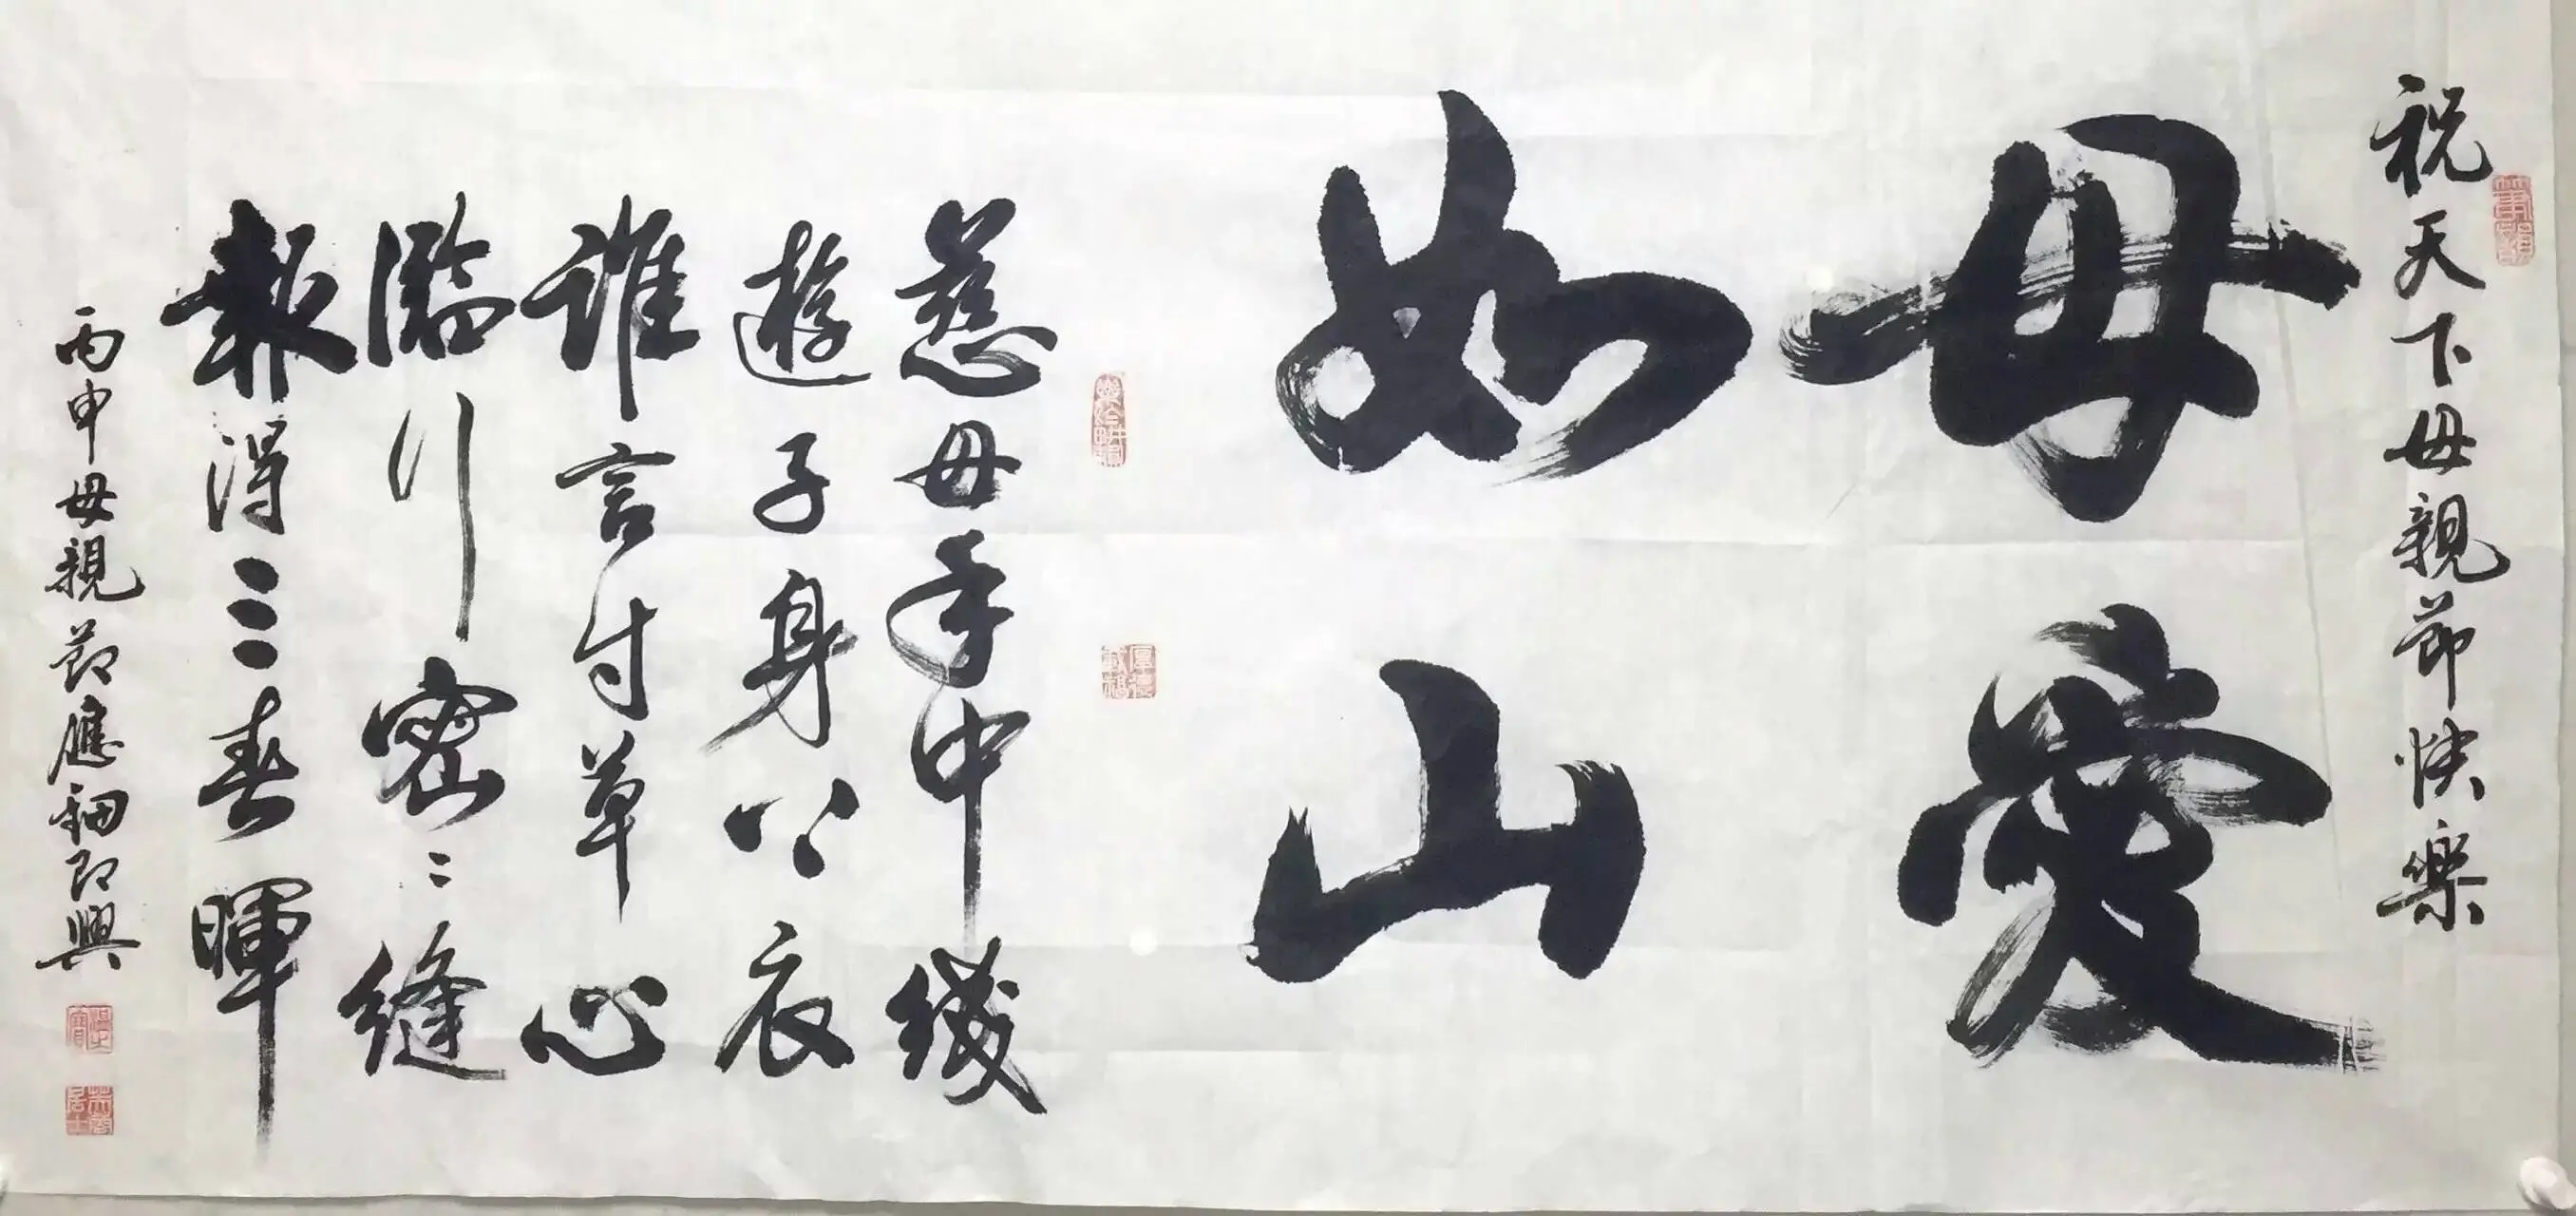 祝天下母親節快樂
母愛
如山
慈母手中綫
遊子身上衣
誰言寸草心
臨行密々縫
報得三春暉
丙申母親節應即興
厚德載福